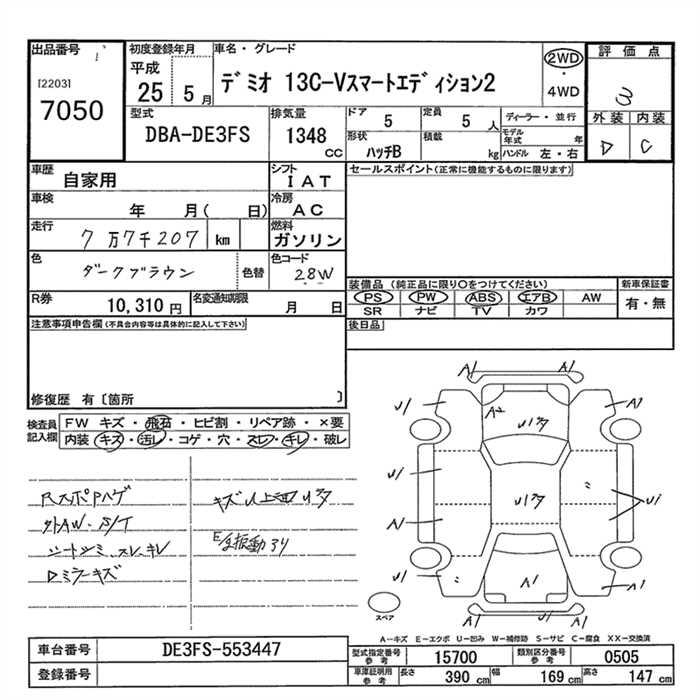 出品番号
[2203]
7050
初度登録年月
平成
25 5月
車名・グレード
デミオ 13C-Vスマートエディション2
2WD
・
4WD
評価点
3
外装 内装
D C
型式
DBA-DE3FS
排気量
1348
CC
ドア
5
定員
5 人
形状
ハッチB
積載
kg
ディーラー・並行
モデル年式 年
ハンドル 左・右
車歴
自家用
シフト
IAT
車検
年 月( 日)
冷房
AC
走行
7万7千207 km
燃料
ガソリン
色
ダークブラウン
色替
色コード
28W
R券
10,310 円
名変通知期限
月 日
セールスポイント(正常に機能するものに限ります)
装備品(純正品に限り○をつけてください)
PS PW ABS エアB AW
SR ナビ TV カワ
新車保証書
有・無
後日品
注意事項申告欄(不具合内容等は具体的に記入して下さい)
修復歴 有〔箇所 〕
検査員記入欄
FW キズ・飛石・ヒビ割・リペア跡・×要
内装・キズ・汚レ・コゲ・穴・スレ・キレ・破レ
RスポPハゲ
外AW・S/T
シートシミ・スレ・キレ
Dミラーキズ
キズ以上凹
振動
A1 A1
U1 A2 A1
U1
U1
A1
U1
U1
A1
A1
A1 A1
スペア
A-キズ E-エクボ U-凹み W-補修跡 S-サビ C-腐食 XX-交換済
車台番号
DE3FS-553447
登録番号
型式指定番号参考
15700
類別区分番号参考
0505
車庫証明用参考
長さ 390 cm
幅 169 cm
高さ 147 cm